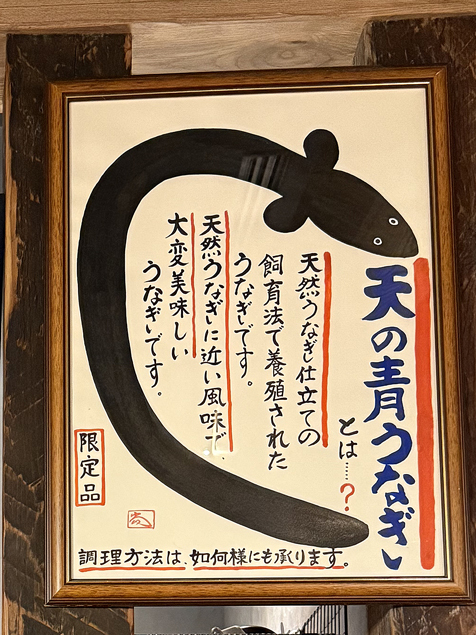 天の青うなぎ
とは……?
天然うなぎ仕立ての
飼育法で養殖された
うなぎです。
天然うなぎに近い風味で
大変美味しい
うなぎです。
限定品
調理方法は、如何様にも承ります。